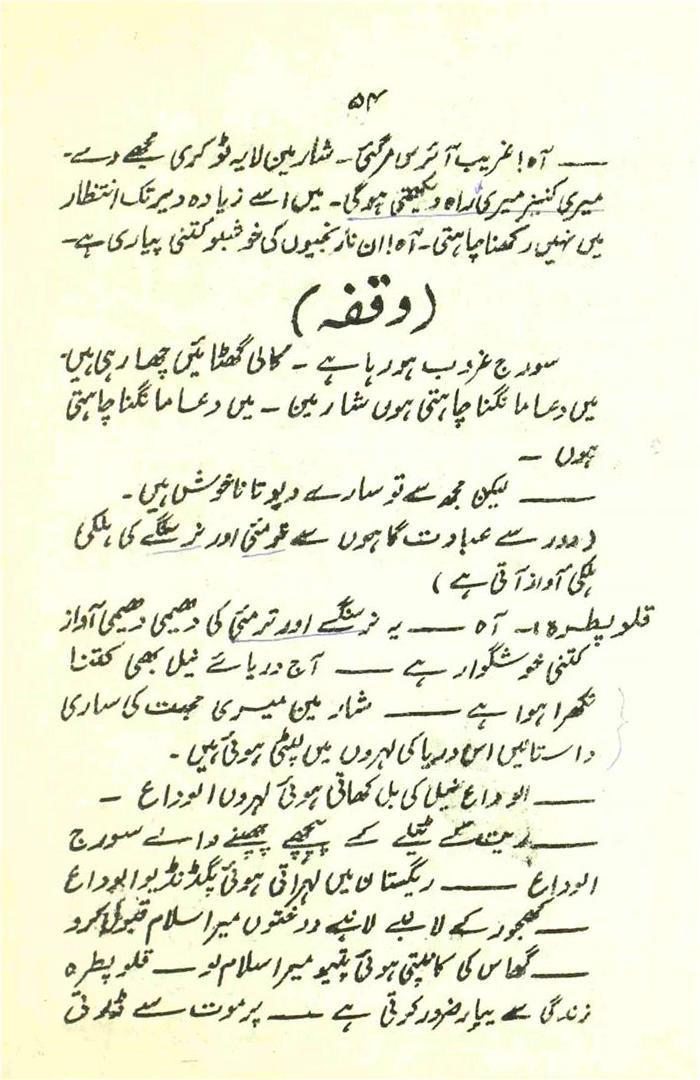 ۵۴
—— آہ! غریب آئرس مر گئی۔ شارمین لا یہ ٹوکری مجھے دے۔
میری کنیز میری راہ دیکھتی ہوگی۔ میں اسے زیادہ دیر تک انتظار
میں نہیں رکھنا چاہتی۔ آہ! ان نارنجیوں کی خوشبو کتنی پیاری ہے۔
(وقفہ)
سورج غروب ہو رہا ہے ۔ کالی گھٹائیں چھا رہی ہیں۔
میں دعا مانگنا چاہتی ہوں شارمین ۔ میں دعا مانگنا چاہتی
ہوں ۔
—— لیکن مجھ سے تو سارے دیوتا ناخوش ہیں۔
(دور سے عبادت گاہوں سے ترمئی اور نرسنگے کی ہلکی
ہلکی آواز آتی ہے)
قلوپطرہ :۔ آہ —— یہ نرسنگے اور ترمئی کی دھیمی دھیمی آواز
کتنی خوشگوار ہے —— آج دریائے نیل بھی کتنا
نکھرا ہوا ہے —— شارمین میری محبت کی ساری
داستانیں اس دریا کی لہروں میں لپٹی ہوئی ہیں۔
—— الوداع نیل کی بل کھاتی ہوئی لہروں الوداع ۔
—— ریت کے ٹیلے کے پیچھے چھپنے والے سورج
الوداع —— ریگستان میں لہراتی ہوئی پگڈنڈیو الوداع
—— کھجور کے لانبے لانبے درختوں میرا سلام قبول کرو
—— گھاس کی کانپتی ہوئی پتیو میرا سلام لو — قلوپطرہ
زندگی سے پیار ضرور کرتی ہے — پر موت سے ڈرتی